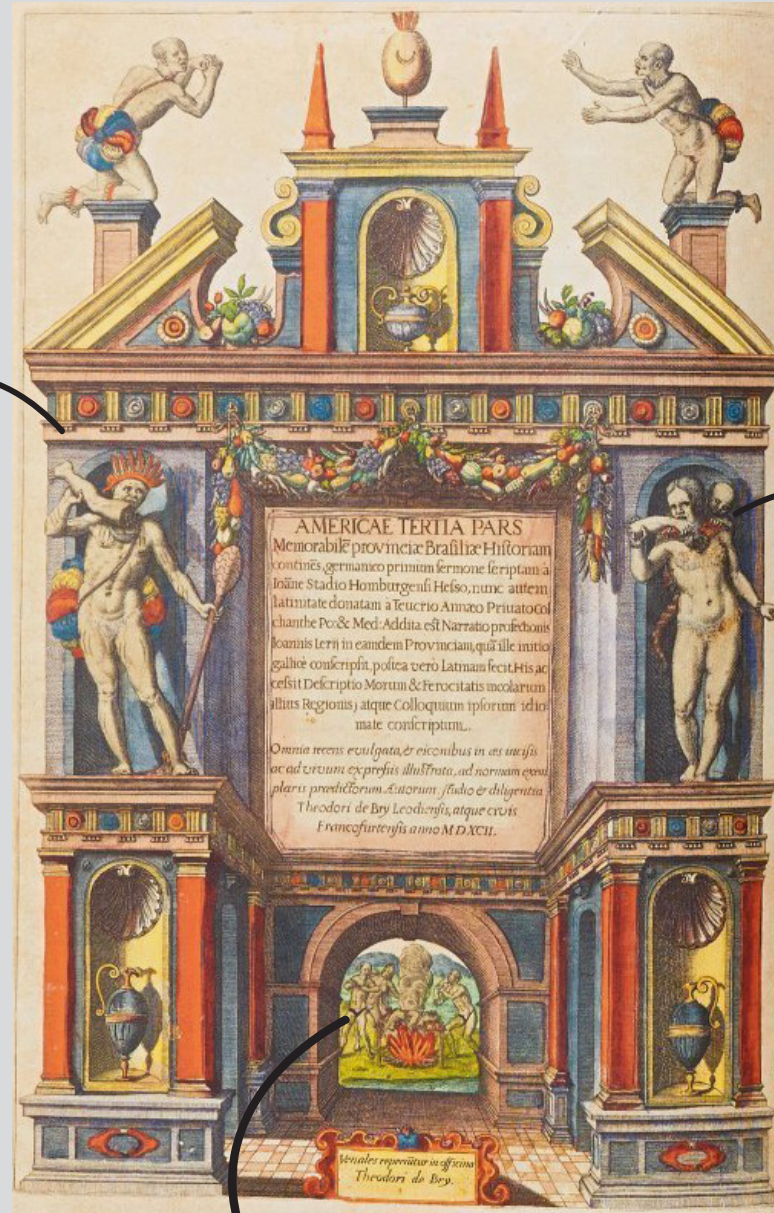 AMERICAE TERTIA PARS
Memorabilē provinciæ Brasiliæ Historiam
continēs, germanico primùm sermone scriptam à
Ioāne Stadio Homburgensi Hesso, nunc autem
latinitate donatam à Teucrio Annæo Priuato Col
chanthe Po: & Med: Addita est Narratio profectionis
Ioannis Lerij in eamdem Provinciam, quā ille initio
gallicè conscripsit, postea verò Latinam fecit. His ac
cessit Descriptio Morum & Ferocitatis incolarum
illius Regionis, atque Colloquium ipsorum idio
mate conscriptum.
Omnia recens evulgata, & eiconibus in æs incisis
ac ad vivum expressis illustrata, ad normam exem
plaris prædictorum Autorum, studio & diligentia
Theodori de Bry Leodiensis, atque civis
Francofurtensis anno MDXCII.
Venales reperiūtur in officina
Theodori de Bry.